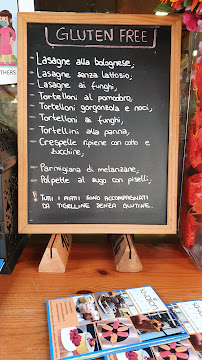 GLUTEN FREE
- LASAGNE ALLA BOLOGNESE,
- LASAGNE SENZA LATTOSIO,
- LASAGNE AI FUNGHI,
- TORTELLONI AL POMODORO,
- TORTELLONI GORGONZOLA E NOCI,
- TORTELLONI AI FUNGHI,
- TORTELLINI ALLA PANNA,
- CRESPELLE RIPIENE CON COTTO E
ZUCCHINE,
- PARMIGIANA DI MELANZANE,
- POLPETTE AL SUGO CON PISELLI,
! TUTTI I PIATTI SONO ACCOMPAGNATI
DA TIGELLINE SENZA GLUTINE.
THERS